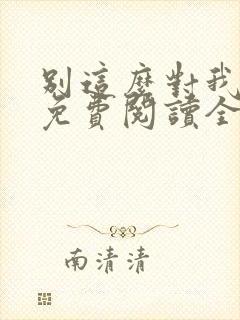 別這麼對我
免費閱讀全
南清清